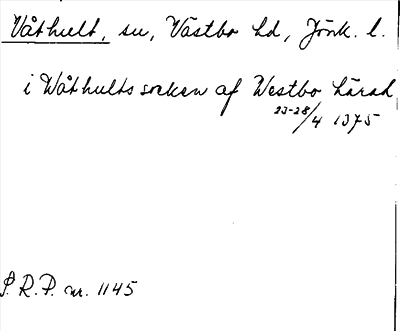 Våthult, sn, Västbo hd, Jönk. l.
i Wåthults socken af Westbo härad
23-28/4 1375
S.R.P. nr. 1145